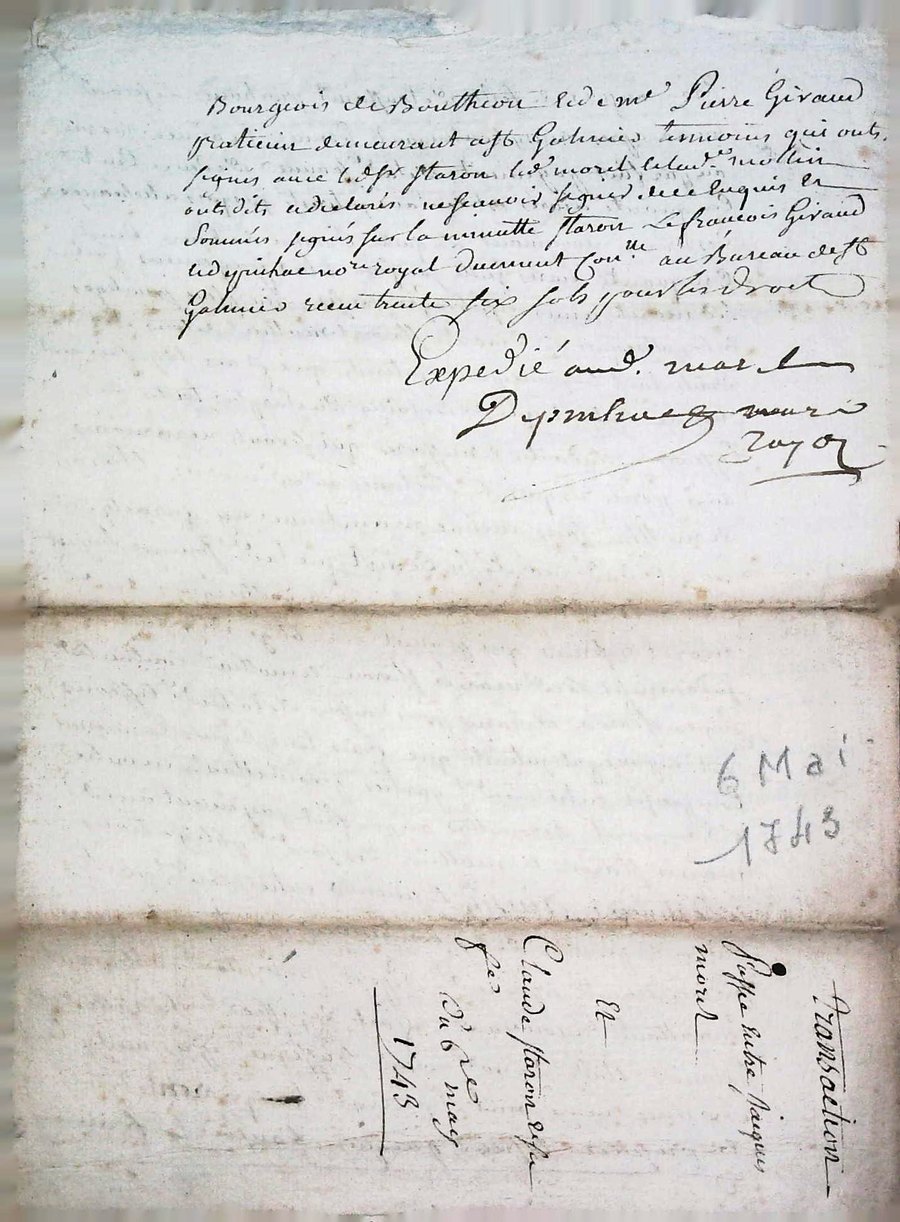 Bourgeois de Boutheon et de me Pierre Giraud
praticien demeurant a st Galmier temoins qui onts
signés avec led. sr staron led. moret et lad.e mollin
onts dits et declarés ne scavoir signer de ce enquis et
Sommés signés sur la minutte staron Le francois Giraud
notre royal duement con.lle au Bureau de st
Galmier receu trente six sols pour les droits
Expedié aud.
6 Mai
1743
Transaction
Passe entre Jaques
moret
Et
Claude staron et sa
fe
du 6e may
1743